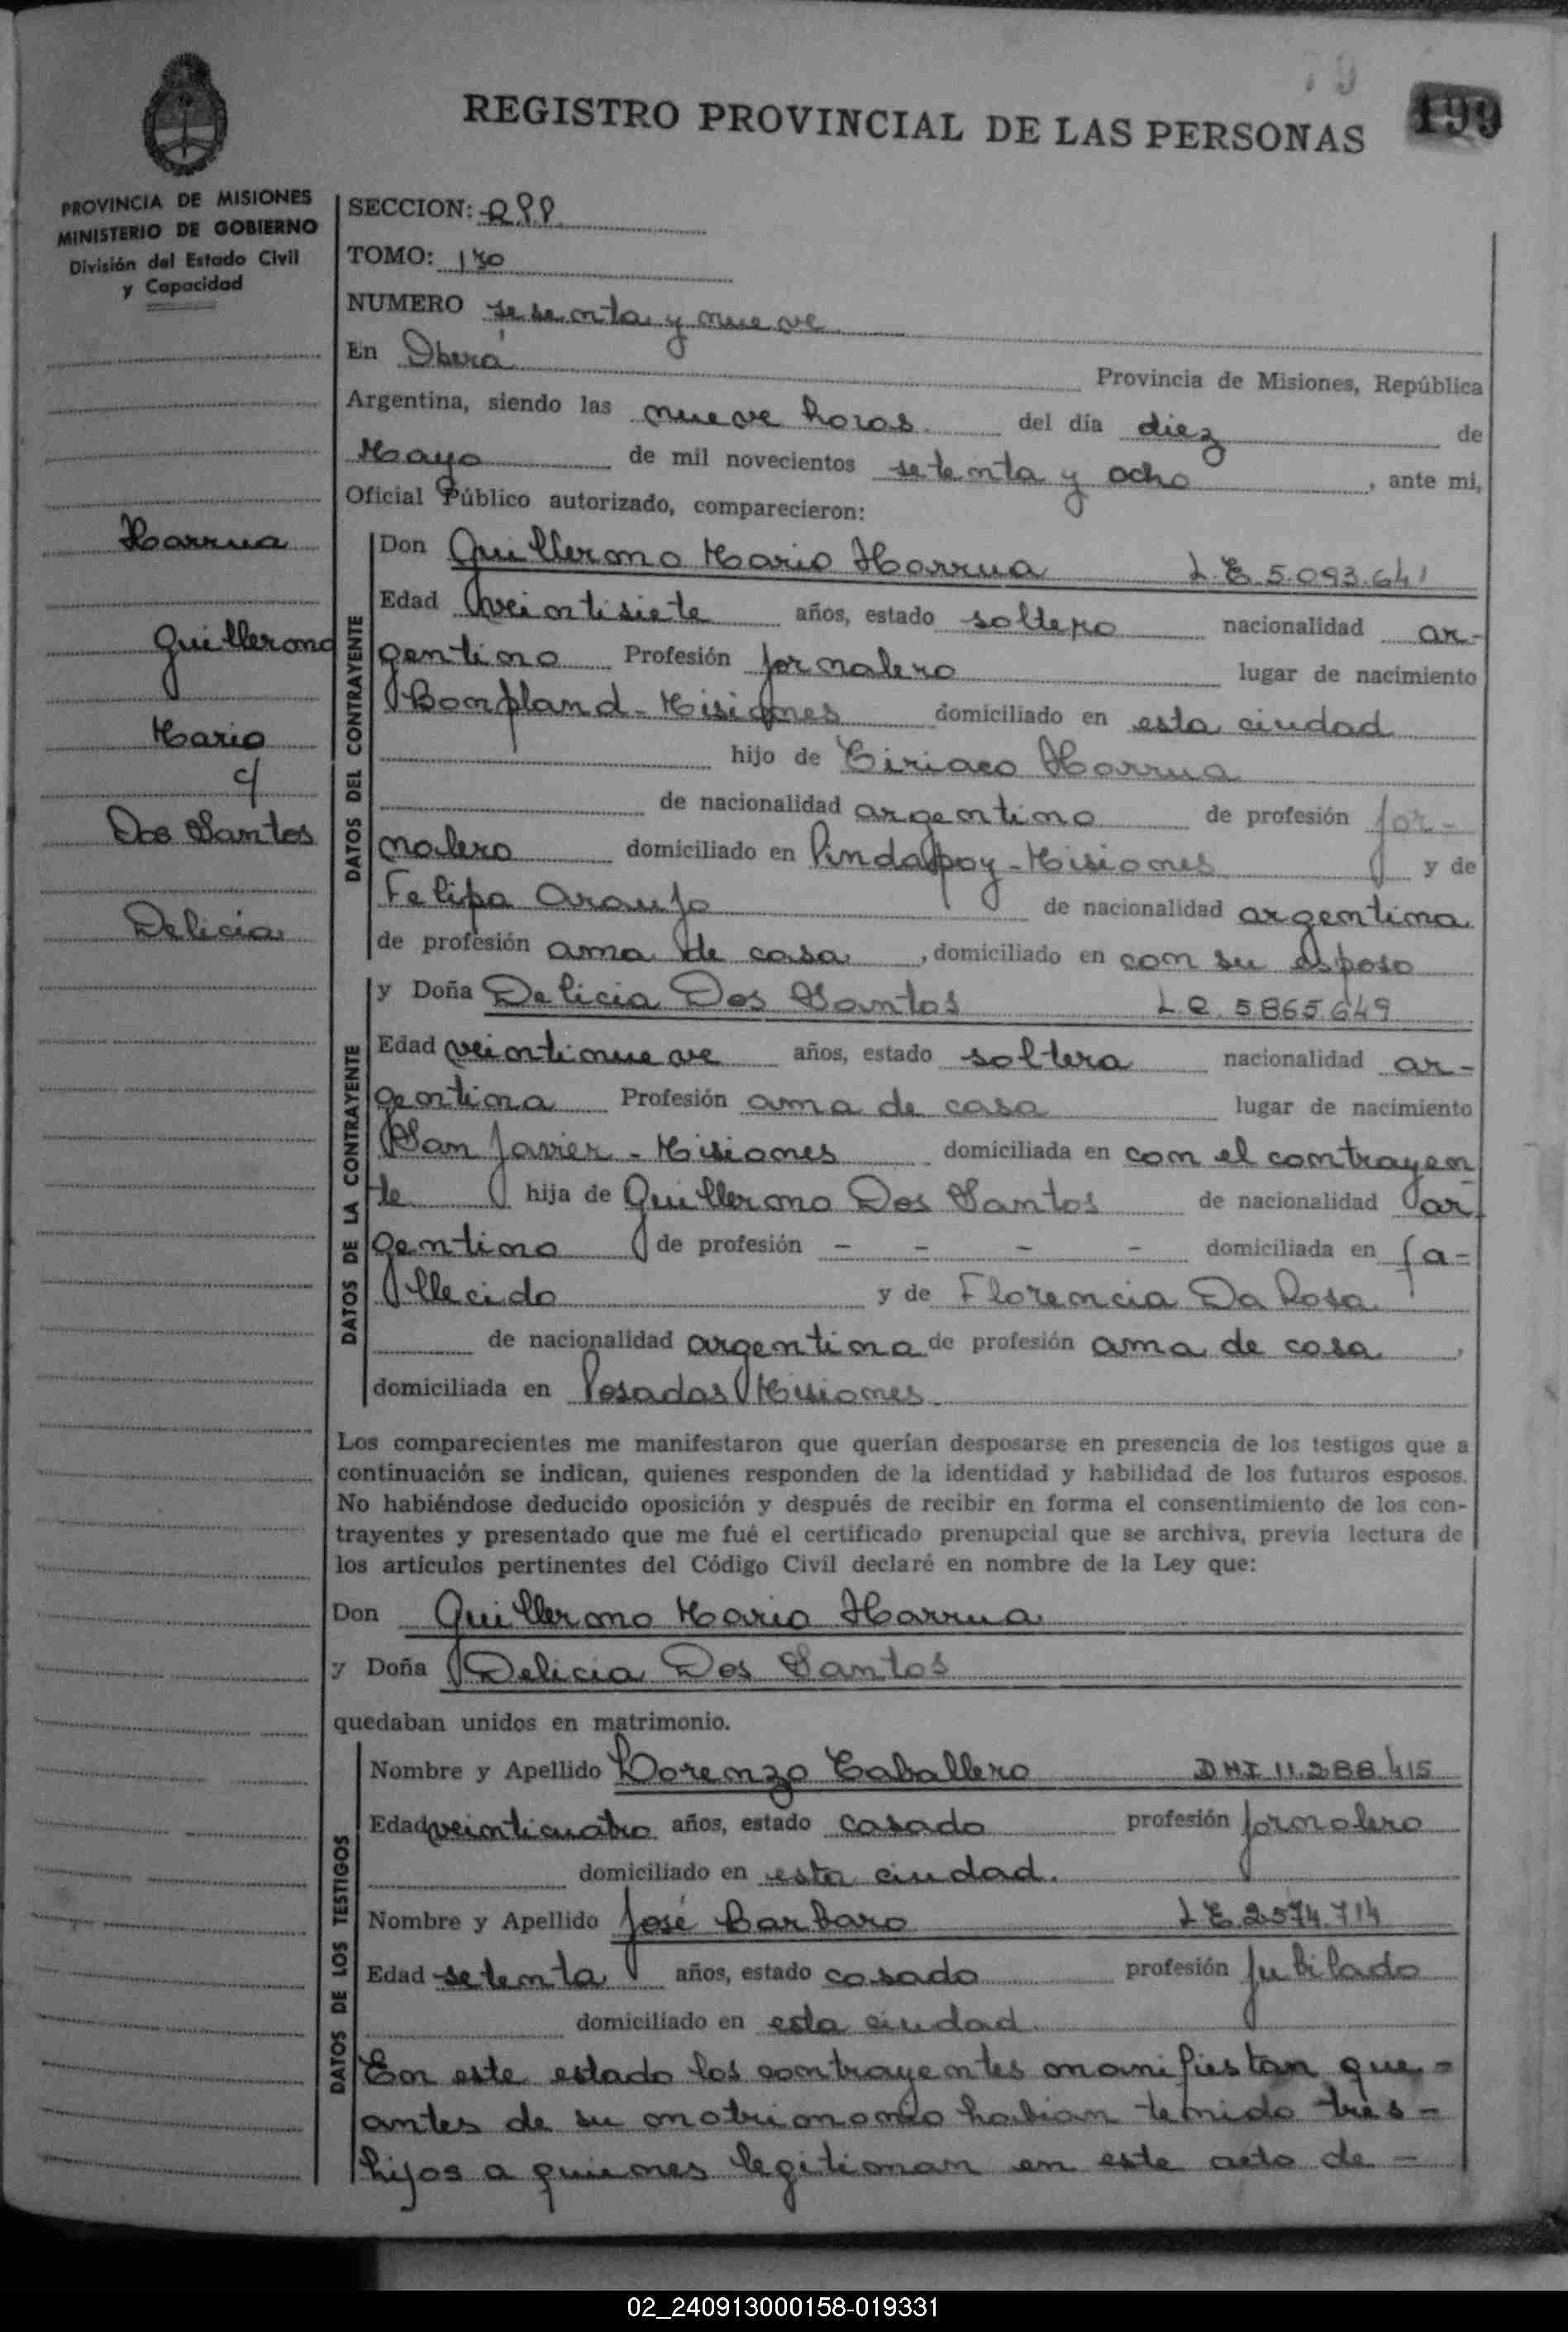 REGISTRO PROVINCIAL DE LAS PERSONAS
199
PROVINCIA DE MISIONES
MINISTERIO DE GOBIERNO
División del Estado Civil
y Capacidad
SECCION:
TOMO: 1ro
NUMERO sesenta y nueve
En Oberá Provincia de Misiones, República
Argentina, siendo las nueve horas. del día diez de
Mayo de mil novecientos setenta y ocho, ante mi,
Oficial Público autorizado, comparecieron:
Harrua
Guillermo
Mario
c/
Dos Santos
Delicia
DATOS DEL CONTRAYENTE
Don Guillermo Mario Harrua L.E. 5.093.641
Edad veintisiete años, estado soltero nacionalidad ar-
gentino Profesión jornalero lugar de nacimiento
Bonpland - Misiones domiciliado en esta ciudad
hijo de Ciriaco Harrua
de nacionalidad argentino de profesión jor-
nalero domiciliado en Pindapoy - Misiones y de
Felipa Araujo de nacionalidad argentina
de profesión ama de casa, domiciliado en con su esposo
DATOS DE LA CONTRAYENTE
y Doña Delicia Dos Santos L.C. 5865649
Edad veintinueve años, estado soltera nacionalidad ar-
gentina Profesión ama de casa lugar de nacimiento
San Javier - Misiones domiciliada en con el contrayen
te hija de Guillermo Dos Santos de nacionalidad ar-
gentino de profesión - - - - domiciliada en fa-
llecido y de Florencia Da Rosa
de nacionalidad argentina de profesión ama de casa,
domiciliada en Posadas Misiones.
Los comparecientes me manifestaron que querían desposarse en presencia de los testigos que a
continuación se indican, quienes responden de la identidad y habilidad de los futuros esposos.
No habiéndose deducido oposición y después de recibir en forma el consentimiento de los con-
trayentes y presentado que me fué el certificado prenupcial que se archiva, previa lectura de
los artículos pertinentes del Código Civil declaré en nombre de la Ley que:
Don Guillermo Mario Harrua
y Doña Delicia Dos Santos
quedaban unidos en matrimonio.
DATOS DE LOS TESTIGOS
Nombre y Apellido Lorenzo Caballero DNI 11.288.415
Edad veinticuatro años, estado casado profesión jornalero
domiciliado en esta ciudad.
Nombre y Apellido José Barbaro L.E. 2574.714
Edad setenta años, estado casado profesión jubilado
domiciliado en esta ciudad.
En este estado los contrayentes manifiestan que -
antes de su matrimonio habian tenido tres -
hijos a quienes legitiman en este acto de -
02_240913000158-019331